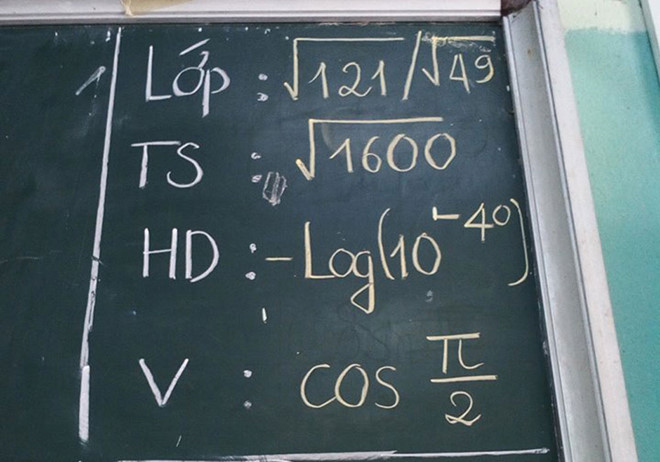 Lớp : √121 / √49
TS : √1600
HD : -Log(10⁻⁴⁰)
V : cos π/2